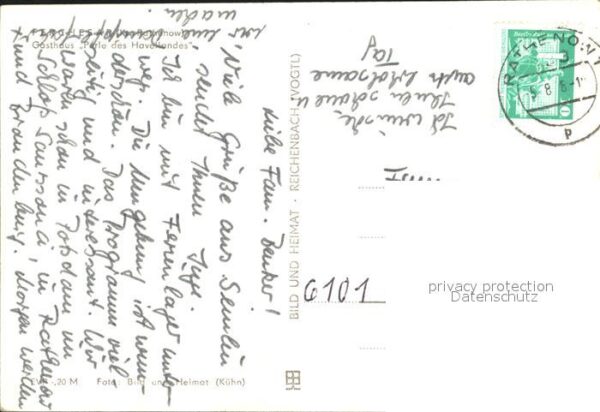 Liebe Fam. Becker!
Viele Grüße aus Semlin
sendet Ihnen Inge.
Ich bin mit Ferienlager unter-
wegs. Die Umgebung ist wun-
derschön. Das Programm viel
seitig und interessant. Wir
waren schon in Potsdam im
Schloß Sanssouci, in Rathenow
und Brandenburg. Morgen werden
wir eine
machen.
Ich wünsche
Ihnen schöne u.
auch erholsame
Tag
Gasthaus "Perle des Havellandes"
EVP -,20 M Foto: Bild und Heimat (Kühn)
BILD UND HEIMAT · REICHENBACH (VOGTL)
RATHENOW 1
6101
privacy protection
Datenschutz